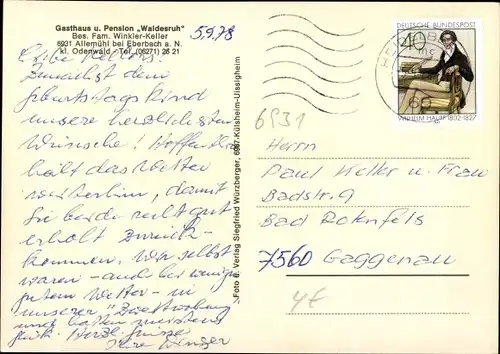 Gasthaus u. Pension „Waldesruh"
Bes. Fam. Winkler-Keller
6931 Allemühl bei Eberbach a. N.
kl. Odenwald - Tel. (06271) 26 21
5.9.78
Zunächst dem
Geburtstagskind
unsere herzlichsten
Wünsche! Hoffentlich
hält das Wetter
weiterhin, damit
Sie beide recht gut
erholt zurück-
kommen. Wir selbst
waren - auch bei weniger
gutem Wetter - in
unserer
und hatten meistens
Glück. Herzl. Grüsse
Ihre
Foto u. Verlag Siegfried Würzberger, 6987 Külsheim-Uissigheim
DEUTSCHE BUNDESPOST
40
WILHELM HAUFF 1802-1827
6931
Herrn
Paul Keller u. Frau
Badstr. 9
Bad Rotenfels
7560 Gaggenau
4€